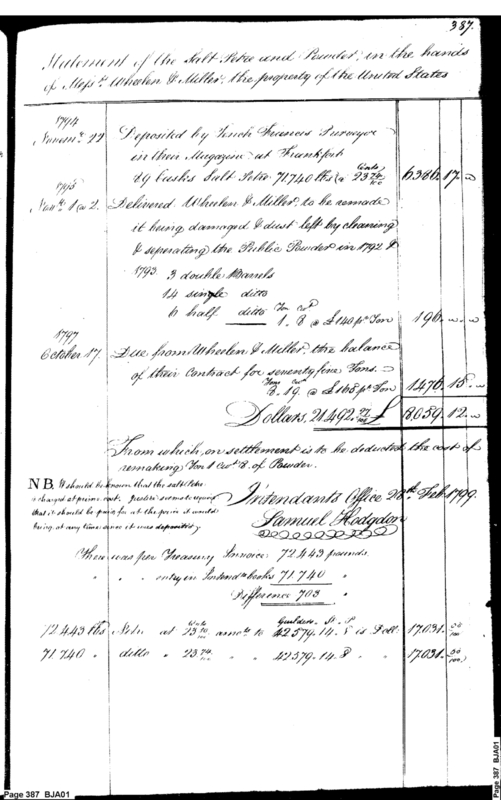 387.
Statement of the Salt Petre and Powder, in the hands
of Messrs. Wheelen & Miller, the property of the United States
1794
Novemr. 22 Deposited by Tench Francis Purveyor
in their Magazine at Frankfort
Casks Salt Petre 71,740 lbs @ Cents 23 74/100 6386. 17. "
1795
Novr. 1 @ 2. Delivered Wheelen & Miller, to be remade
it being damaged & dust left by cleaning
& seperating the Public Powder in 1792 &
1793 3 double Barrels
14 single ditto
6 half ditto Ton Cwt 1. 8 @ £140 pr. Ton 196. " "
1797
October 17. Due from Wheelen & Miller, the balance
of their Contract for seventy five Tons.
Tons Cwt 8. 19. @ £165 pr Ton 1476. 15. "
Dollars, 21,492. £ 8059. 12. "
From which, on settlement is to be deducted the cost of
remaking Ton 1 Cwt 8. of Powder.
NB. It should be known that the saltpetre
is charged at prime cost.
that it should be paid for at the price it would
bring at any time since it was deposited
Intendants Office 28th. Feb. 1799
Samuel Hodgdon
There was per Treasury Invoice 72443 pounds.
" " entry in Intendts. books 71.740 "
Difference 703 "
72.443 lbs Petre at Cents 23 amots. to Guilders St. P. 42579. 14. 8 is Doll. 17.031. 50/100
71.740 " ditto " 23 74/100 " " 42579. 14. 8 17.031. 50/100
Page 387 BJA01
Page 387 BJA01